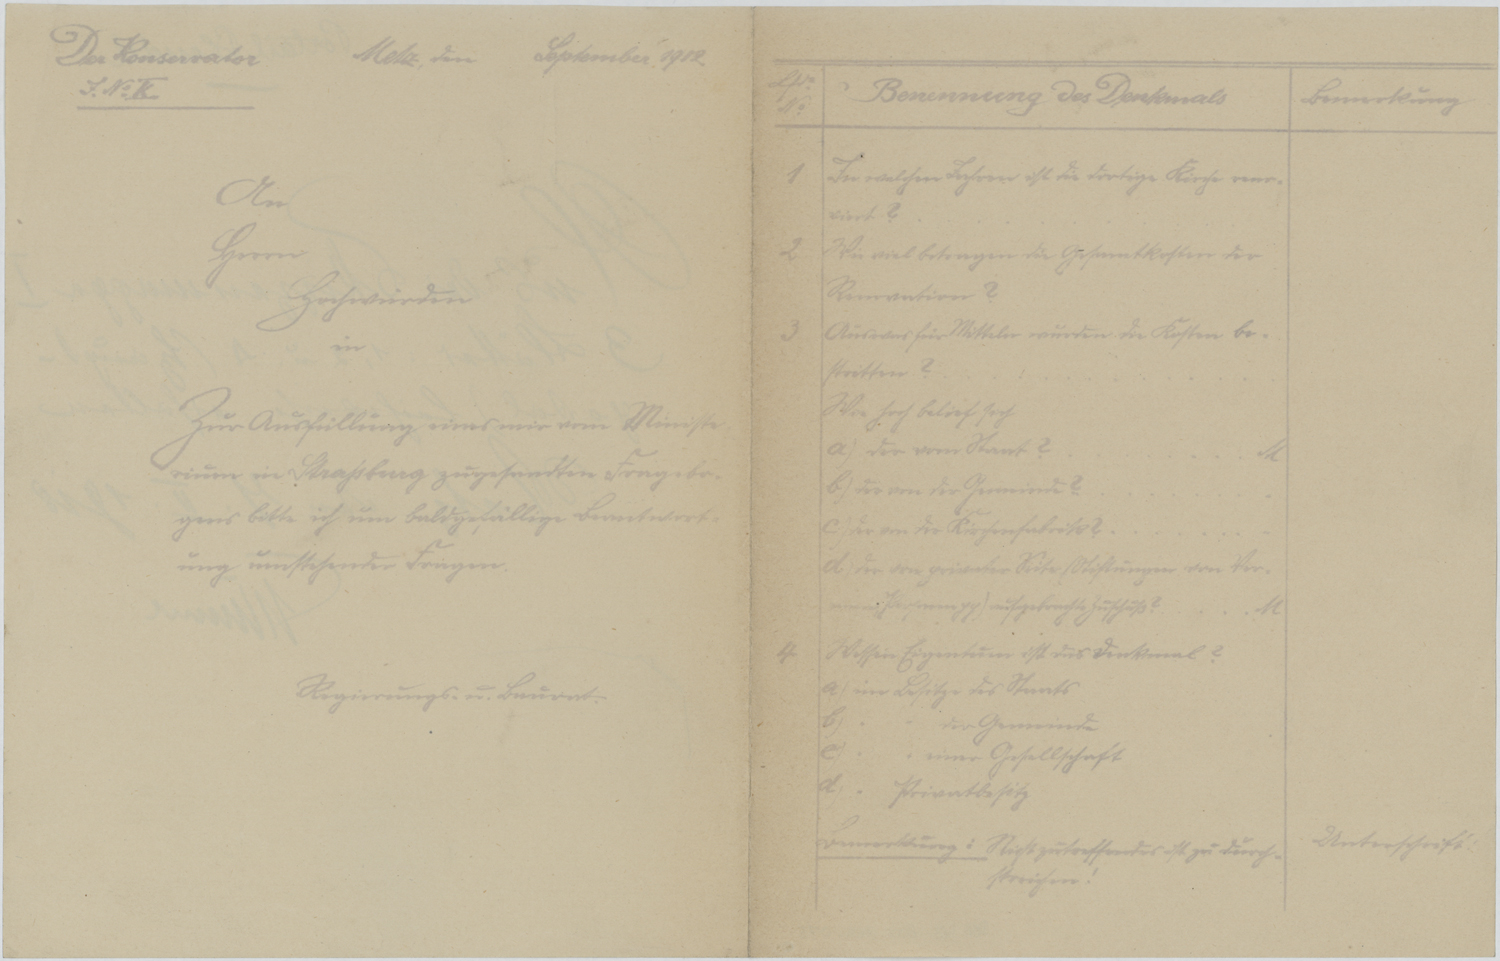 Der Konservator
Metz, den September 1912.
J. No. IX
An
Herrn
Hochwürden
in
Zur Ausfüllung eines mir vom Ministe-
rium in Straßburg zugesandten Fragebo-
gens bitte ich um baldgefällige Beantwort-
ung umstehender Fragen.
Regierungs- u. Baurat.
Lfd. No. Benennung des Denkmals Bemerkung
1 In welchen Jahren ist die dortige Kirche reno-
viert?
2 Wie viel betragen die Gesamtkosten der
Renovation?
3 Aus was für Mitteln wurden die Kosten be-
stritten?
Wie hoch belief sich
a) der vom Staat? M
b) der von der Gemeinde?
c) der von der Kirchenfabrik?
d) der von privater Seite (Stiftungen von Ver-
aufgebrachte Zuschuß? M
4 Wessen Eigentum ist das Denkmal?
a) im Besitze des Staats
b) " " der Gemeinde
c) " " einer Gesellschaft
d) " Privatbesitz
Bemerkung: Nicht zutreffendes ist zu durch-
streichen!
Unterschrift: